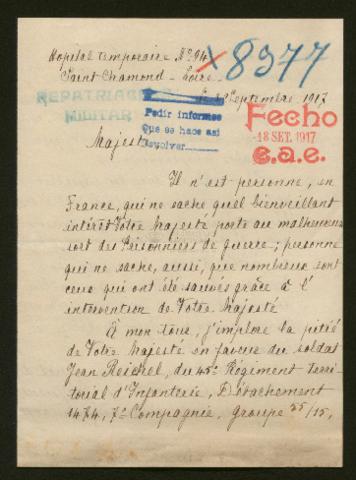 Hopital temporaire No 94
X 8377
Saint Chamond - Loire -
REPATRIACION
MILITAR
Septembre 1917
Pedir informes
Que se hace así
Devolver
Fecho
18 SET. 1917
e.a.e.
Majesté
Il n'est personne, en
France, qui ne sache quel bienveillant
intérêt Votre Majesté porte au malheureux
sort des Prisonniers de guerre; personne
qui ne sache, aussi, que nombreux sont
ceux qui ont été sauvés grâce à l'
intervention de Votre Majesté
À mon tour, j'implore la pitié
de Votre Majesté en faveur du soldat
Jean Reichel, du 45e Régiment terri-
torial d'Infanterie, Détachement
1474, 7e Compagnie, groupe 25/15,